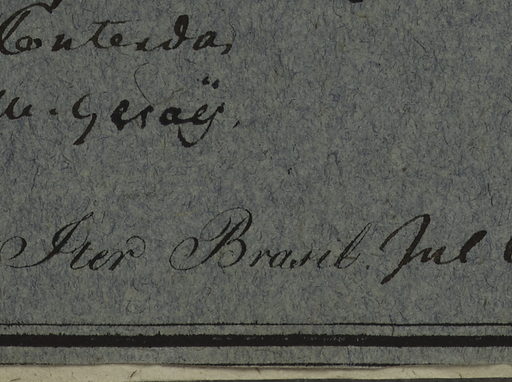 Conterda,
M. Geraÿ,
Iter Brasil. Jul